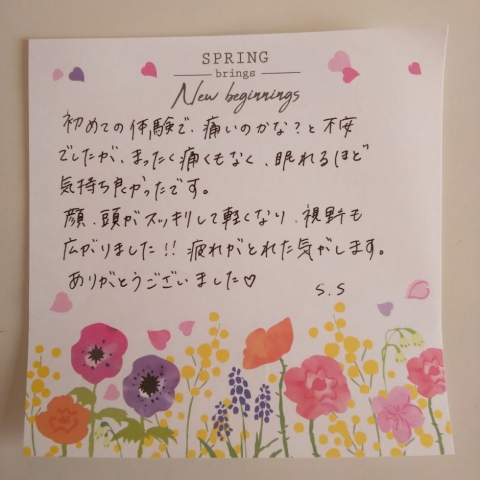 SPRING
brings
New beginnings
初めての体験で、痛いのかな？と不安
でしたが、まったく痛くもなく、眠れるほど
気持ち良かったです。
顔、頭がスッキリして軽くなり、視野も
広がりました!! 疲れがとれた気がします。
ありがとうございました♡
S.S